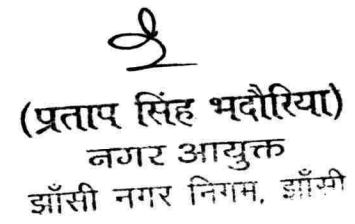 (प्रताप सिंह भदौरिया)
नगर आयुक्त
झाँसी नगर निगम, झाँसी